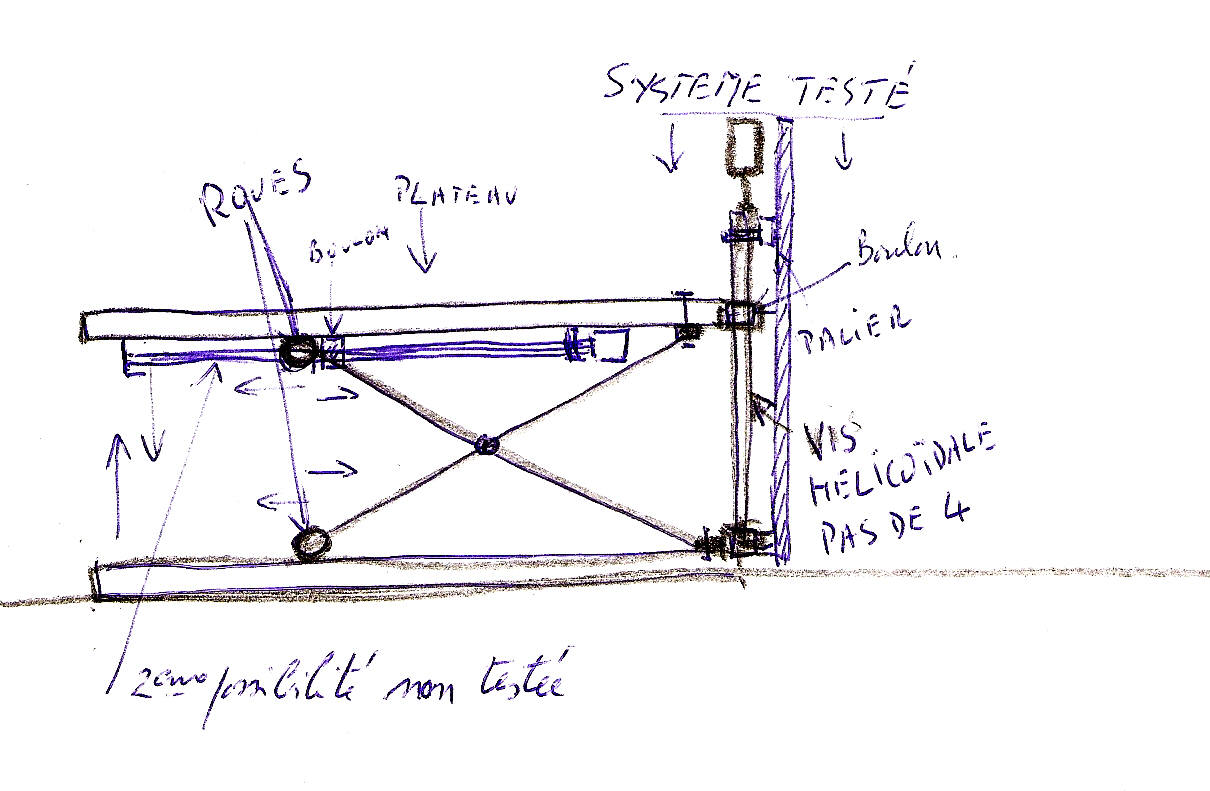 SYSTEME TESTÉ
ROUES
PLATEAU
BOULON
Boulon.
PALIER
VIS
HELICOÏDALE
PAS DE 4
2eme possibilité non testée